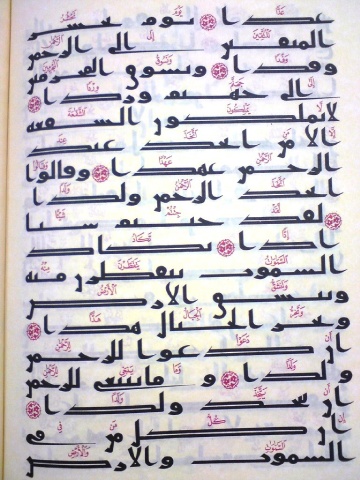 عدا ۝ يوم نحشر
المتقين الى الرحمن
وفدا ۝ ونسوق المجرمين
الى جهنم وردا ۝
لا يملكون الشفعة
الا من اتخذ عند
الرحمن عهدا ۝ وقالوا
اتخذ الرحمن ولدا
۝ لقد جئتم شيئا
ادا ۝ تكاد
السموت يتفطرن منه
وتنشق الارض
وتخر الجبال هدا ۝
ان دعوا للرحمن
ولدا ۝ وما ينبغي للرحمن
ان يتخذ ولدا ۝
ان كل من في
السموت والارض